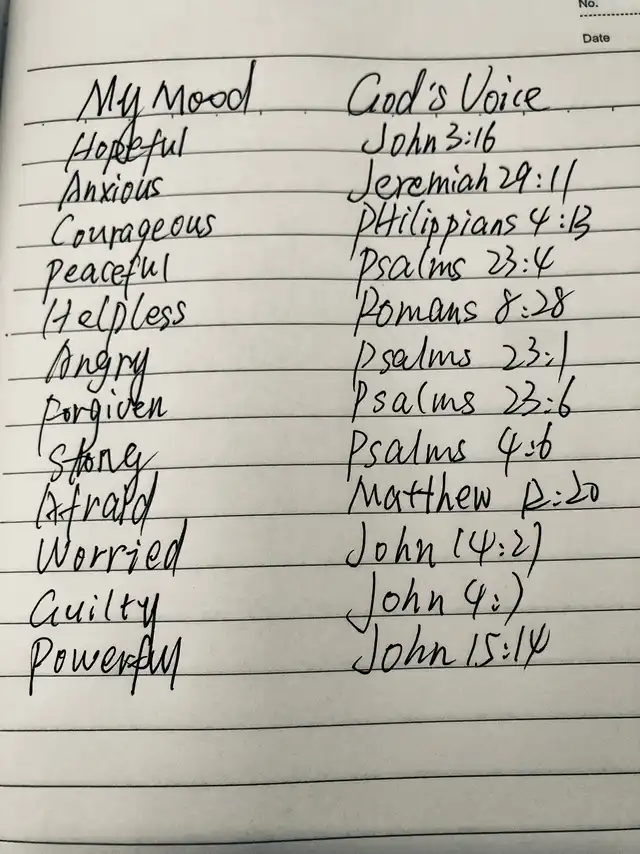 No.
Date
My Mood God's Voice
Hopeful John 3:16
Anxious Jeremiah 29:11
Courageous PHilippians 4:13
Peaceful Psalms 23:4
Helpless Romans 8:28
Angry Psalms 23:1
Forgiven Psalms 23:6
Strong Psalms 4:6
Afraid Matthew 12:20
Worried John 14:27
Guilty John 4:7
Powerful John 15:14